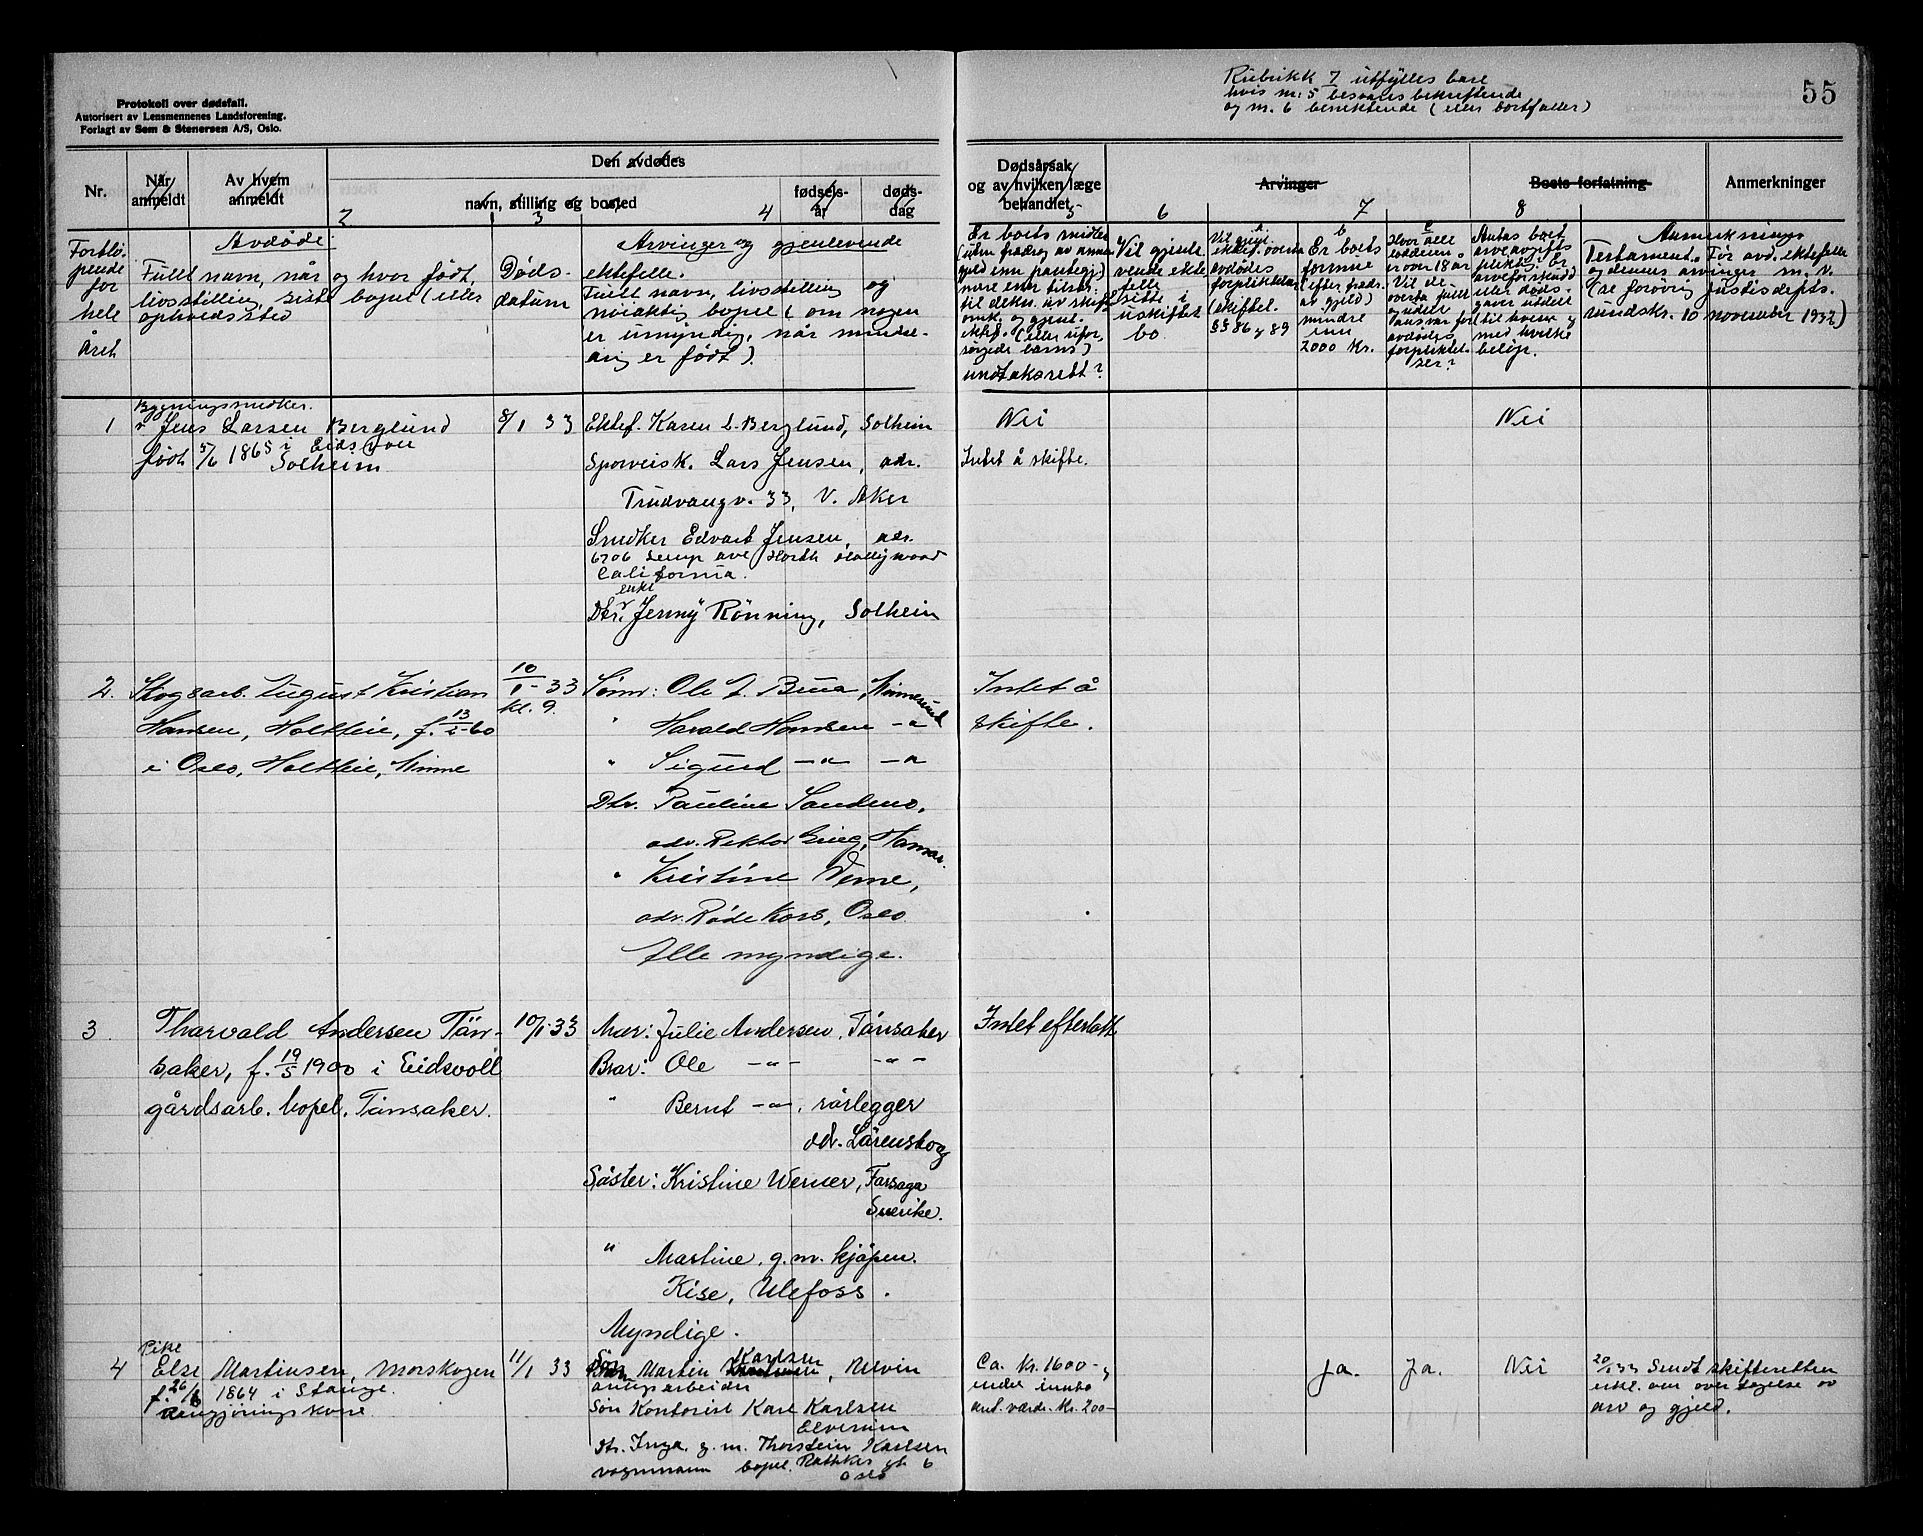 Protokoll over dødsfall.
Autorisert av Lensmennenes Landsforening.
Forlagt av Sem & Stenersen A/S, Oslo.
Rubrikk 7 utfylles bare
hvis nr. 5 besvares bekreftende
og nr. 6 benektende (eller bortfaller)
55
Nr.
Når anmeldt
Av hvem anmeldt
Den avdødes
navn, stilling og bosted
fødsels-år
døds-dag
Dødsårsak
og av hvilken læge
behandlet
Arvinger
Boets forfatning
Anmerkninger
2
3
4
5
6
7
8
Fortlø-
pende
for
hele
året
Avdøde:
Fullt navn, når og hvor født,
livsstilling, siste bopel (eller
opholdssted
Døds-
datum
Arvinger og gjenlevende
ektefelle.
Fullt navn, livsstilling og
nøiaktig bopel (om nogen
er umyndig, når minde-
årig er født).
Er boets midler
(uten fradrag av annen
gjeld enn pantegj.)
undtaksrett?
Vil gjenle-
vende ekte
felle
sitte i
uskiftet
bo
a
avdødes
forpliktelser
(skiftel.
§§ 86 og 89
b
Er boets
formue
(efter fradr.
av gjeld)
mindre
enn
2000 Kr.
c
Hvor alle
er over 18 år
Vil de
overta fullt
ansvar for
avdødes
forpliktel-
ser?
Antas boet
arveavgifts
pliktig. Er
arveforskudd
eller døds-
gaver utdelt
til hvem og
med hvilke
beløp.
Anmerkninger
Testament. Før avd. ektefelle
og dennes arvinger m. v.
(se forøvrig justisdepts.
rundskr. 10 november 1932)
1
Bygningssnedker.
Jens Larsen Berglund
født 5/6 1865 i Eidsvoll
Solheim
8/1 33
Ektef. Karen L. Berglund, Solheim
Sporveisk. Lars Jensen, adr.
Trudvangv. 33, V. Aker
Snedker Edvart Jensen, adr.
6706 Lemp ave North Hollywood
California.
enke
Dtr. Jenny Rønning, Solheim
Nei
Intet å skifte.
Nei
2.
Skogsarb. August Kristian
Hansen, Holtteie, f. 13/2-60
i Oslo, Holtteie, Minne
10/1-33
kl. 9.
Sønn: Ole A. Bua, Minnesund
" Harald Hansen -"-
" Sigurd -"- -"-
Dtr. Pauline Sandmo,
adr. Rektor Grieg, Hamar.
" Kristine Verne,
adr. Røde Kors, Oslo.
Alle myndige.
Intet å
skifte.
3
Thorvald Andersen Tøn-
saker, f. 19/5 1900 i Eidsvoll
gårdsarb. bopel. Tønsaker.
10/1 33
Mor: Julie Andersen, Tønsaker
Bror: Ole -"- -"-
" Bernt -"-, rørlegger
adr. Lørenskog
Søster: Kristine Werner, Forsaga
Sverike.
" Martine, g. m. kjøpm.
Kise, Ulefoss.
Myndige.
Intet efterlatt
4
Pike
Else Martinsen, Morskogen
f. 26/6 1864 i Stange.
Rengjøringskone.
11/1 33
Søn Martin Karlsen, Ulvin
anleggsarbeider
Søn Kontorist Karl Karlsen
Elverum
Dtr. Inga, g. m. Thorstein Karlsen
vognmann bopel. Rathkes gt. 6
Oslo
Ca. Kr. 1600- og
endel innbo
ant. værdi Kr. 200-
Ja.
Ja.
Nei
20/1 33 Sendt skifteretten
erkl. om overtagelse av
arv og gjeld.